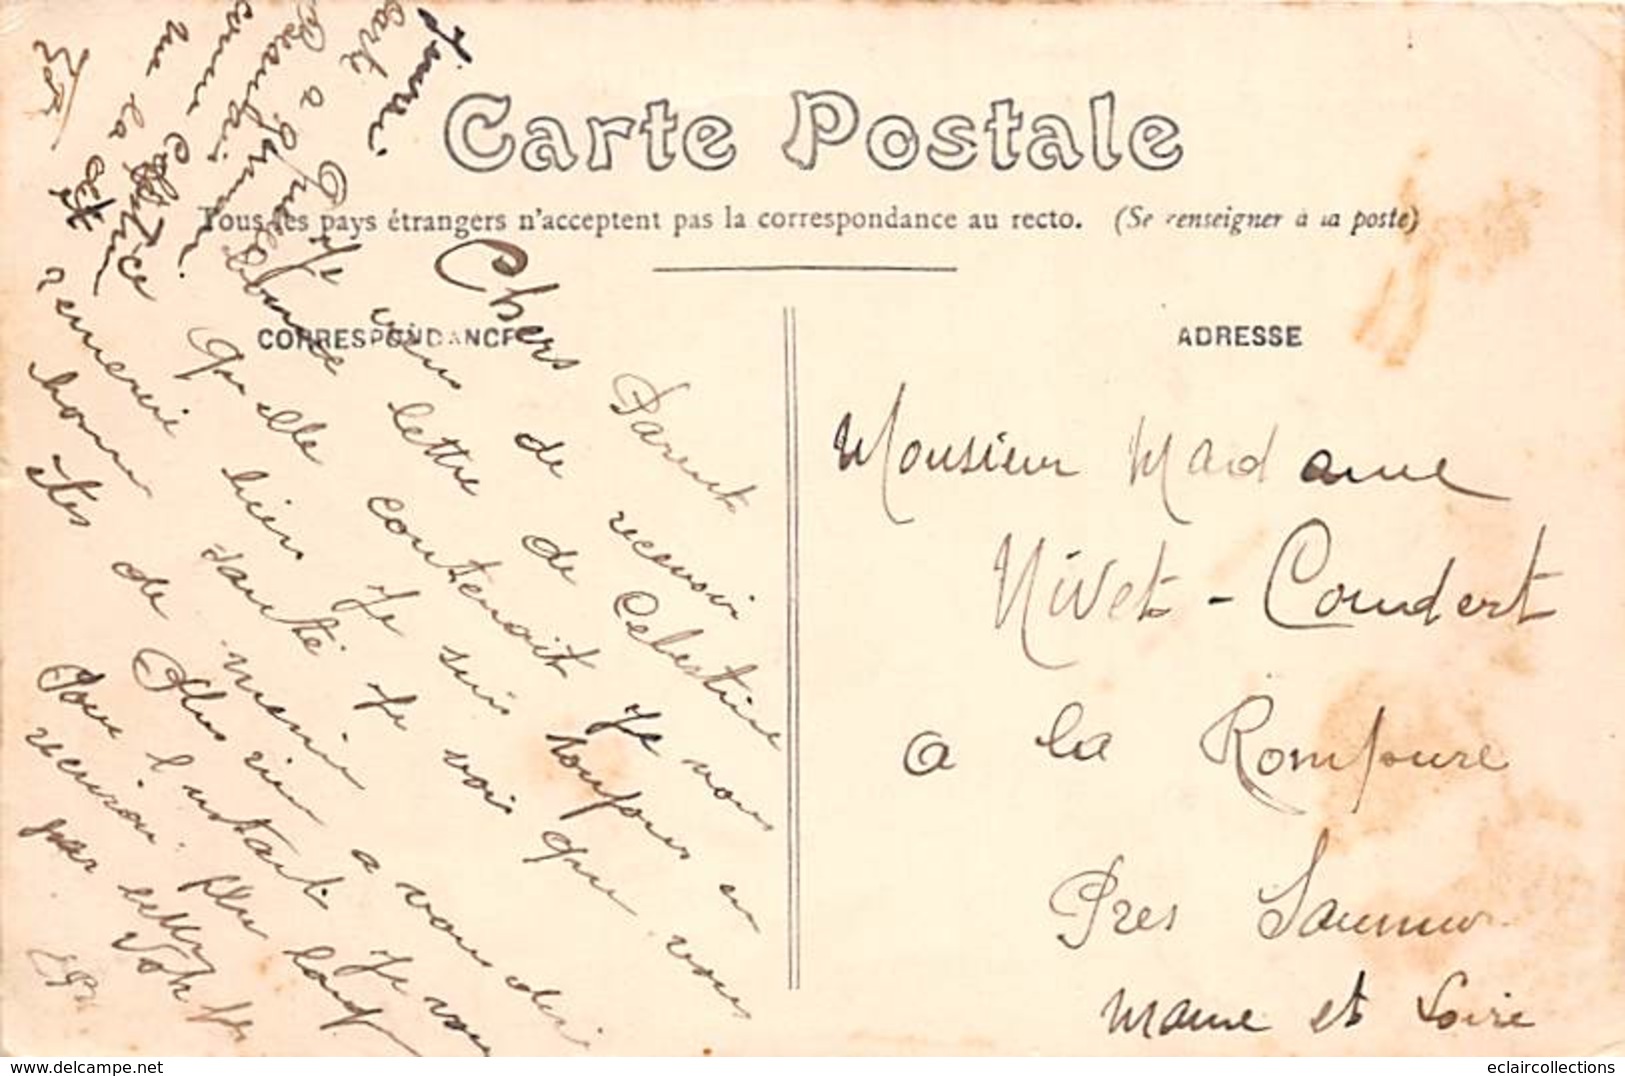 Carte Postale
Tous les pays étrangers n'acceptent pas la correspondance au recto. (Se renseigner à la poste)
CORRESPONDANCE
ADRESSE
Chers Parents
Je viens de recevoir
lettre de Celestine
Quelle contenait Je vous
remerci bien Je suis toujours en
bonne santé Je vois que vous
êtes de meme
Plus rien a vous dire
Pour l'instant Je vous
ecrirai plus long
par lettre
Votre fils
carte a
Monsieur Madame
Nivet - Coudert
a la Romfoure
Pres Saumur
Maine et Loire
eclaircollections